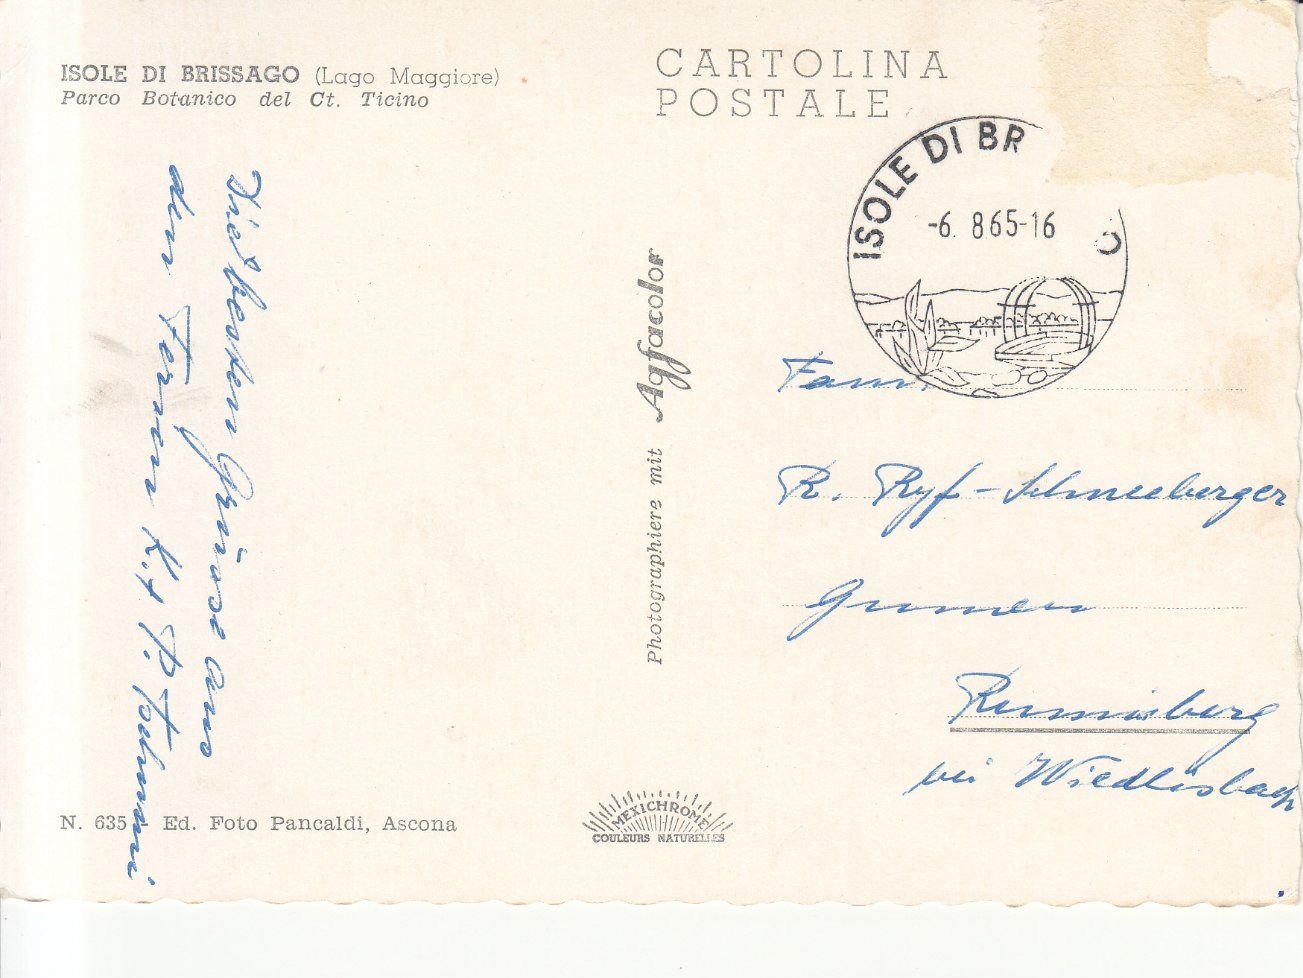 ISOLE DI BRISSAGO (Lago Maggiore)
Parco Botanico del Ct. Ticino
CARTOLINA
POSTALE
ISOLE DI BR O
-6. 8 65-16
Die besten Grüsse aus
den Ferien K. + P.
Photographiere mit Agfacolor
Fam.
R. Ryf-Schneeberger
Rumisberg
bei Wiedlisbach
N. 635 - Ed. Foto Pancaldi, Ascona
MEXICHROME
COULEURS NATURELLES